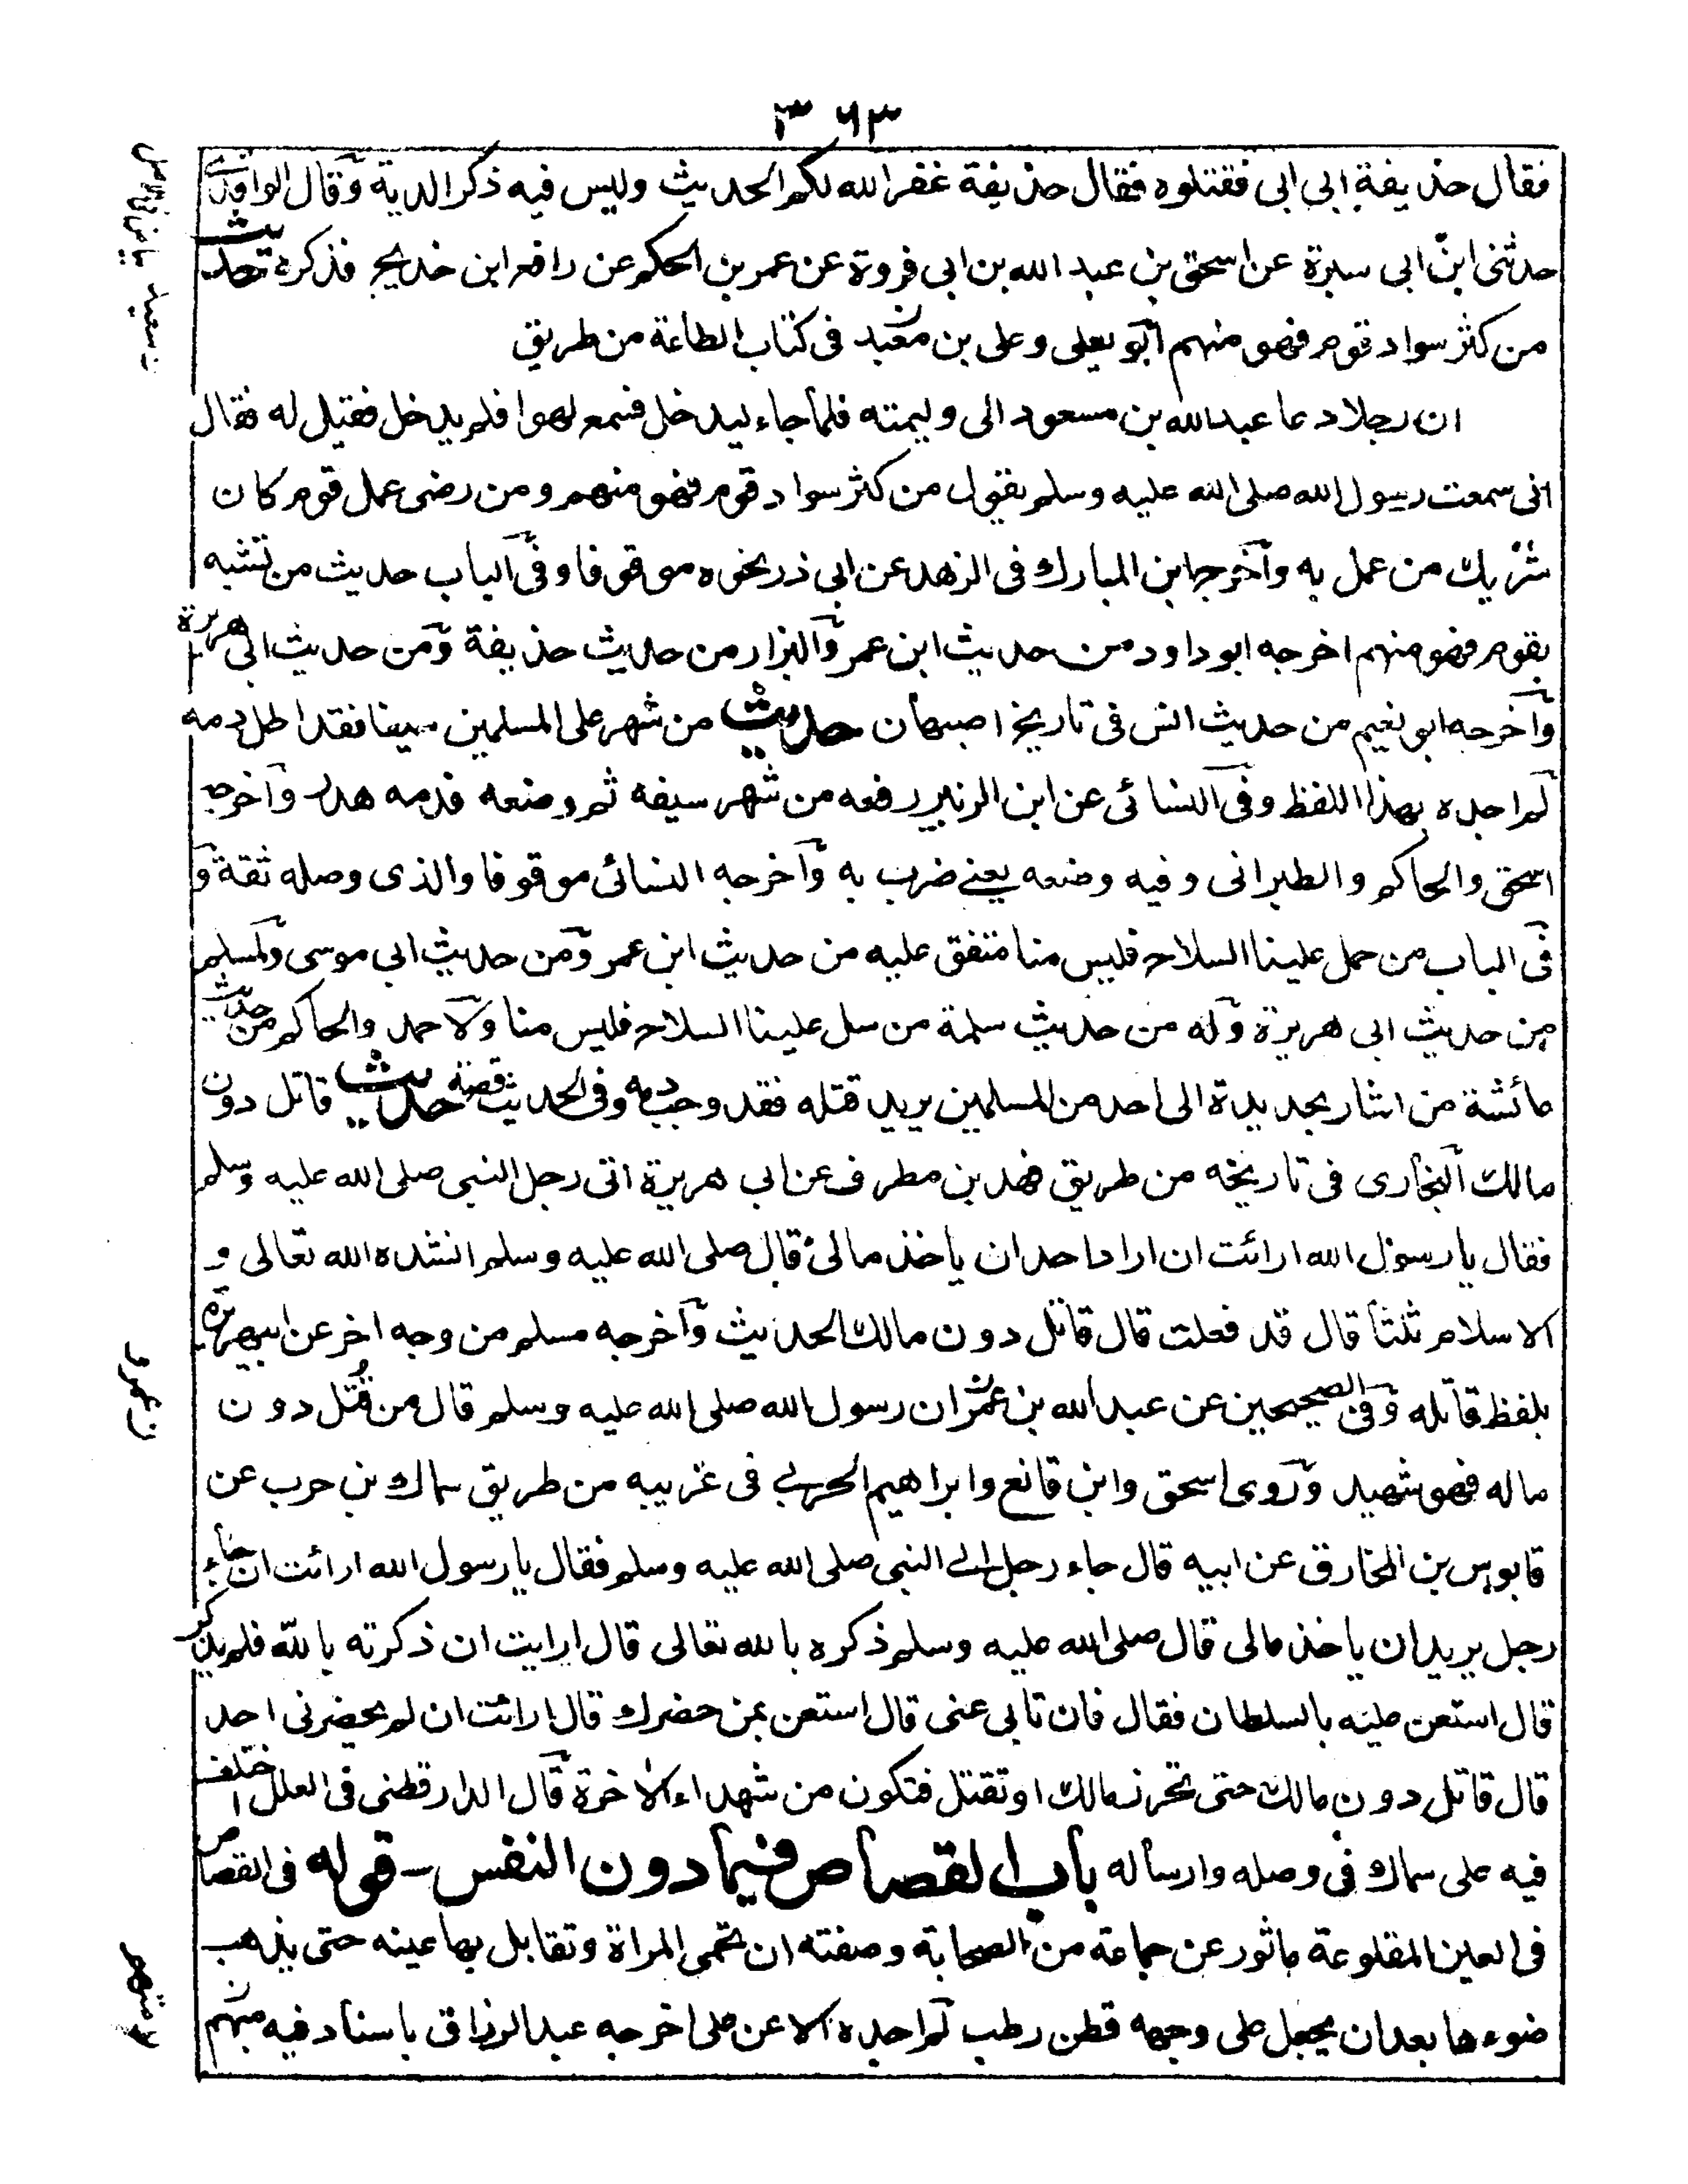 ٣٦٣
فقال حذيفة ابى ابى فقتلوه فقال حذيفة غفر الله لكم الحديث وليس فيه ذكر الدية وقال الواقدى
حدثنى ابن ابى سبرة عن اسحق بن عبد الله بن ابى فروة عن عمر بن الحكم عن رافع ابن خديج فذكره حديث
من كثر سواد قوم فهو منهم ابو يعلى وعلى بن معبد فى كتاب الطاعة من طريق
ان رجلا دعا عبد الله بن مسعود الى وليمته فلما جاء ليدخل فسمع لهوا فلم يدخل فقيل له فقال
انى سمعت رسول الله صلى الله عليه وسلم يقول من كثر سواد قوم فهو منهم ومن رضى عمل قوم كان
شريك من عمل به وآخرجه ابن المبارك فى الزهد عن ابى ذر نحوه موقوفا وفى الباب حديث من تشبه
بقوم فهو منهم اخرجه ابو داود من حديث ابن عمر والبزار من حديث حذيفة ومن حديث ابى هريرة
وآخرجه ابو نعيم من حديث انس فى تاريخ اصبهان حديث من شهر على المسلمين سيفا فقد اطل دمه
لم اجده بهذا اللفظ وفى النسائى عن ابن الزبير رفعه من شهر سيفه ثم وضعه فدمه هدر وآخرجه
اسحق والحاكم والطبرانى وفيه وضعه يعنے ضرب به وآخرجه النسائى موقوفا والذى وصله ثقة و
فى الباب من حمل علينا السلاح فليس منا متفق عليه من حديث ابن عمر ومن حديث ابى موسى ولمسلم
من حديث ابى هريرة وله من حديث سلمة من سل علينا السلاح فليس منا ولاحمد والحاكم من حديث
عائشة من اشار بحديدة الى احد من المسلمين يريد قتله فقد وجب دمه وفى الحديث قصة حديث قاتل دون
مالك البخارى فى تاريخه من طريق فهد بن مطرف عن ابى هريرة اتى رجل النبى صلى الله عليه وسلم
فقال يا رسول الله ارائت ان اراد احد ان ياخذ مالى قال صلى الله عليه وسلم انشده الله تعالى و
الاسلام ثلثا قال قد فعلت قال قاتل دون مالك الحديث وآخرجه مسلم من وجه اخر عن ابيهريرة
بلفظ قاتله وفى الصحيحين عن عبد الله بن عمر ان رسول الله صلى الله عليه وسلم قال من قُتل دون
ماله فهو شهيد وروى اسحق وابن قانع وابراهيم الحربے فى غريبه من طريق سماك بن حرب عن
قابوس بن المخارق عن ابيه قال جاء رجل الے النبى صلى الله عليه وسلم فقال يا رسول الله ارائت ان جاء
رجل يريد ان ياخذ مالى قال صلى الله عليه وسلم ذكره بالله تعالى قال ارايت ان ذكرته بالله فلم يذكر
قال استعن عليه بالسلطان فقال فان نابى عنى قال استعن بمن حضرك قال ارائت ان لم يحضرنى احد
قال قاتل دون مالك حتى تحرز مالك او تقتل فتكون من شهداء الاخرة قال الدارقطنى فى العلل اختلف
فيه على سماك فى وصله وارساله باب القصاص فيما دون النفس - قوله فى القصاص
فى العين المقلوعة ماثور عن جماعة من الصحابة وصفته ان تحمى المراة وتقابل بها عينه حتى يذهب
ضوءها بعد ان يجعل على وجهه قطن رطب لم اجده الا عن على اخرجه عبد الرزاق باسناد فيه مبهم
ن عمرو